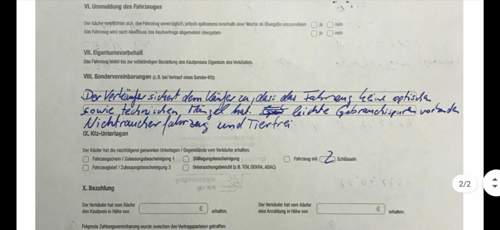 VI. Ummeldung des Fahrzeuges
ja nein
Das Fahrzeug wird nach Abschluss des Kaufvertrags abgemeldet übergeben ja nein
VII. Eigentumsvorbehalt
Das Fahrzeug bleibt bis zur vollständigen Bezahlung des Kaufpreises Eigentum des Verkäufers.
VIII. Sondervereinbarungen (z.B. bei Verkauf eines Sonder-Kfz)
Der Verkäufer sichert dem Käufer zu, dass das Fahrzeug keine optischen
sowie technischen Mängel hat. leichte Gebrauchsspuren vorhanden
Nichtraucherfahrzeug und Tierfrei
IX. Kfz-Unterlagen
Der Käufer hat die nachfolgend genannten Unterlagen / Gegenstände vom Verkäufer erhalten.
Fahrzeugschein / Zulassungsbescheinigung 1 Stilllegungsbescheinigung Fahrzeug mit 2 Schlüsseln
Fahrzeugbrief / Zulassungsbescheinigung 2 Untersuchungsbericht (z.B. TÜV, DEKRA, ADAC)
2/2
X. Bezahlung
Der Verkäufer hat vom Käufer Der Verkäufer hat vom Käufer
den Kaufpreis in Höhe von € erhalten. eine Anzahlung in Höhe von € erhalten.
Folgende Zahlungsvereinbarung wurde zwischen den Vertragsparteien getroffen: